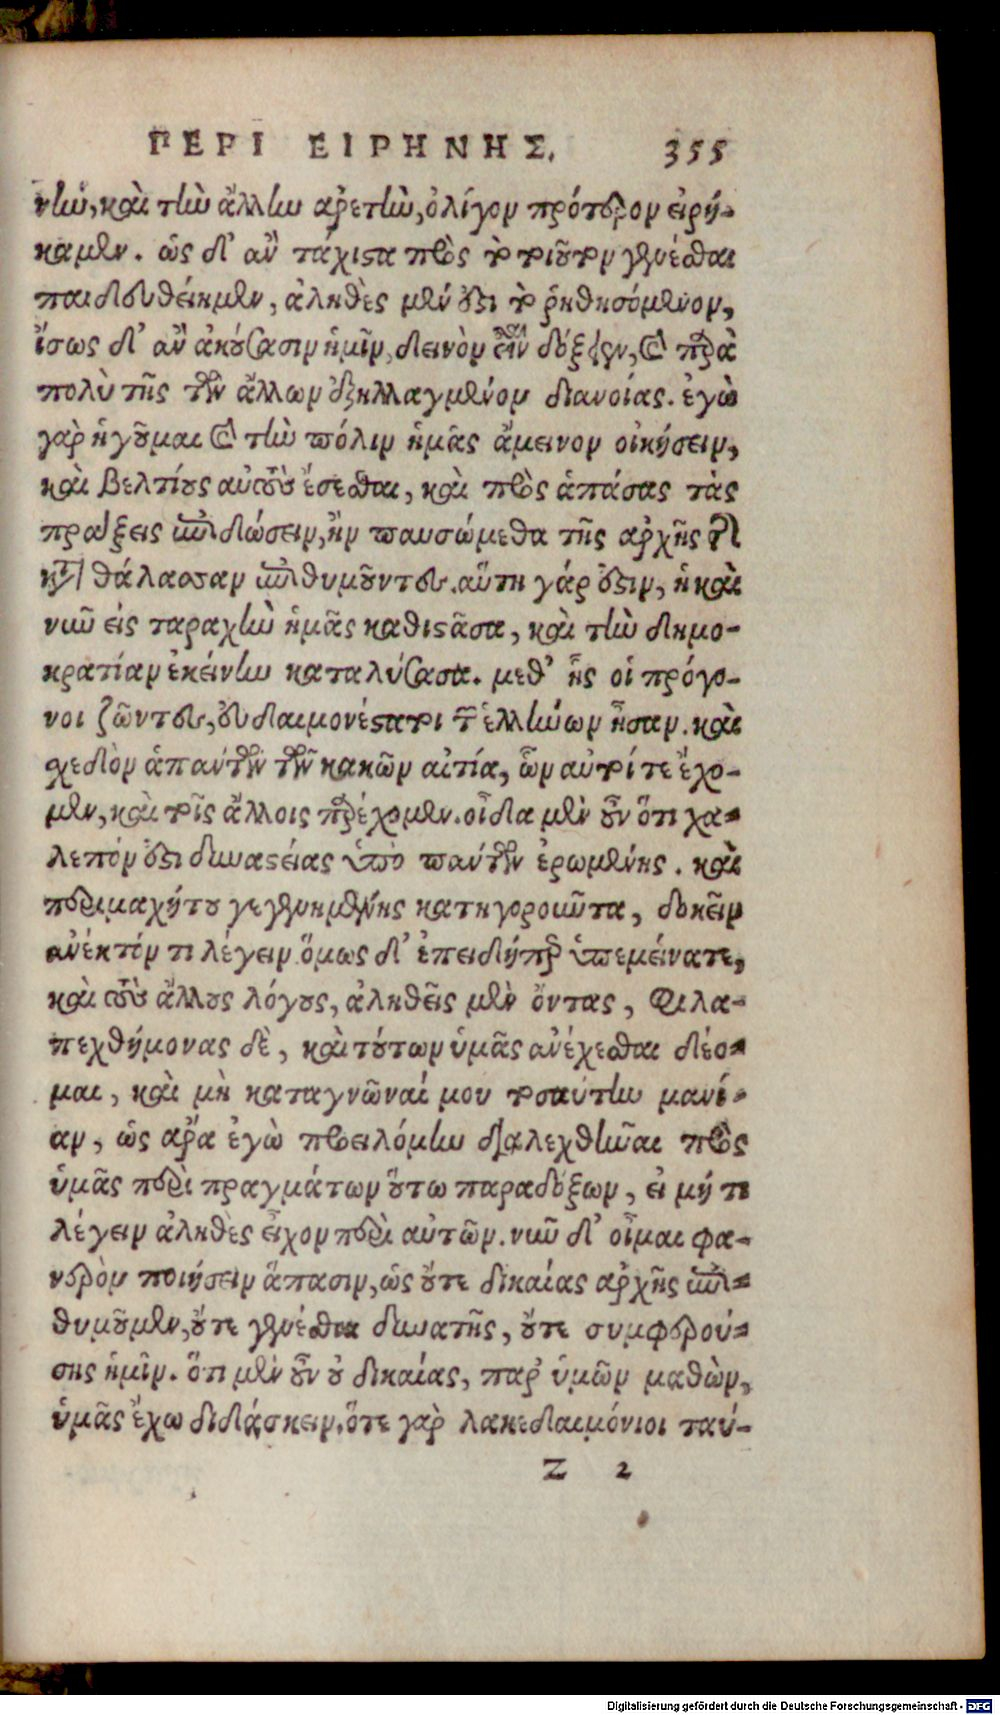 ΠΕΡΙ ΕΙΡΗΝΗΣ. 355
νὴν, καὶ τὴν ἄλλην ἀρετὴν, ὀλίγον πρότερον εἰρή-
καμεν. ὡς δ' ἂν τάχιστα πρὸς τὸ τοιοῦτον γενέσθαι
παιδευθείημεν, ἀληθὲς μέν ἐστι τὸ ῥηθησόμενον,
ἴσως δ' ἂν ἀκούσασιν ἡμῖν, δεινὸν εἶναι δόξειεν, καὶ παρὰ
πολὺ τῆς τῶν ἄλλων ἐξηλλαγμένον διανοίας. ἐγὼ
γὰρ ἡγοῦμαι καὶ τὴν πόλιν ἡμᾶς ἄμεινον οἰκήσειν,
καὶ βελτίους αὐτοὺς ἔσεσθαι, καὶ πρὸς ἁπάσας τὰς
πράξεις ἐπιδώσειν, ἢν παυσώμεθα τῆς ἀρχῆς τῆς
κατὰ θάλασσαν ἐπιθυμοῦντες. αὕτη γάρ ἐστιν, ἡ καὶ
νῦν εἰς ταραχὴν ἡμᾶς καθιστᾶσα, καὶ τὴν δημο-
κρατίαν ἐκείνην καταλύσασα. μεθ' ἧς οἱ πρόγο-
νοι ζῶντες, εὐδαιμονέστατοι τῶν ἑλλήνων ἦσαν. καὶ
σχεδὸν ἁπάντων τῶν κακῶν αἰτία, ὧν αὐτοί τε ἔχο-
μεν, καὶ τοῖς ἄλλοις παρέχομεν. οἶδα μὲν οὖν ὅτι χα-
λεπόν ἐστι δυναστείας ὑπὸ πάντων ἐρωμένης. καὶ
περιμαχήτου γεγενημένης κατηγοροῦντα, δοκεῖν
ἀνεκτόν τι λέγειν. ὅμως δ' ἐπειδήπερ ὑπεμείνατε,
καὶ τοὺς ἄλλους λόγους, ἀληθεῖς μὲν ὄντας, φιλα-
πεχθήμονας δὲ, καὶ τούτων ὑμᾶς ἀνέχεσθαι δέο-
μαι, καὶ μὴ καταγνῶναί μου τοσαύτην μανί-
αν, ὡς ἄρα ἐγὼ προειλόμην διαλεχθῆναι πρὸς
ὑμᾶς περὶ πραγμάτων οὕτω παραδόξων, εἰ μή τι
λέγειν ἀληθὲς εἶχον περὶ αὐτῶν. νῦν δ' οἶμαι φα-
νερὸν ποιήσειν ἅπασιν, ὡς οὔτε δικαίας ἀρχῆς ἐπι-
θυμοῦμεν, οὔτε γενέσθαι δυνατῆς, οὔτε συμφερού-
σης ἡμῖν. ὅτι μὲν οὖν οὐ δικαίας, παρ' ὑμῶν μαθὼν,
ὑμᾶς ἔχω διδάσκειν. ὅτε γὰρ λακεδαιμόνιοι ταύ-
Z 2
Digitalisierung gefördert durch die Deutsche Forschungsgemeinschaft - DFG